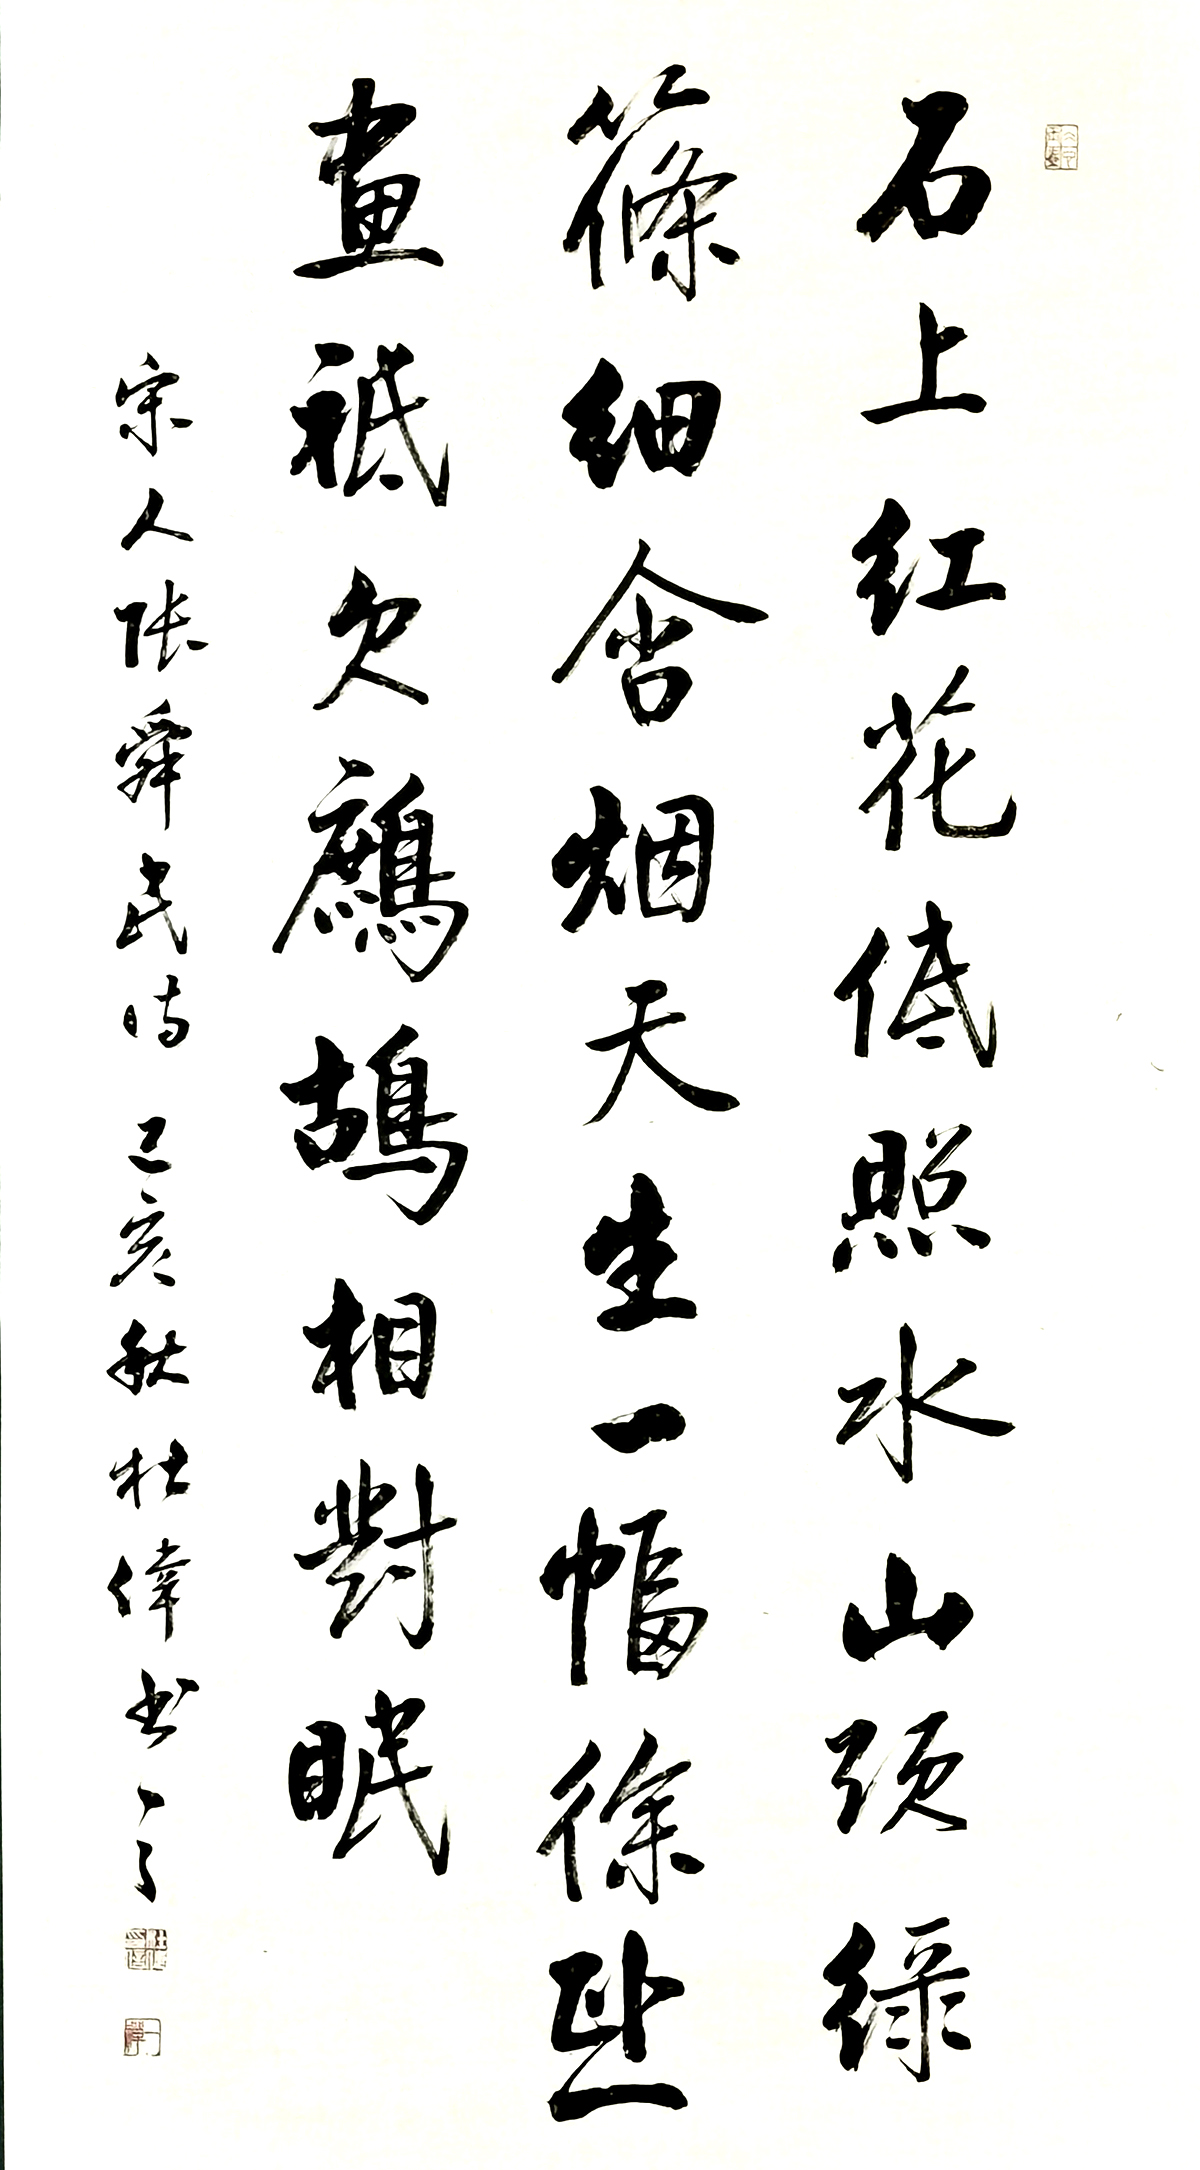 石上红花低照水山頭綠
篠細含烟天生一幅徐熙
画祗欠鷓鴣相對眠
宋人張舜民诗 己亥秋杜偉书